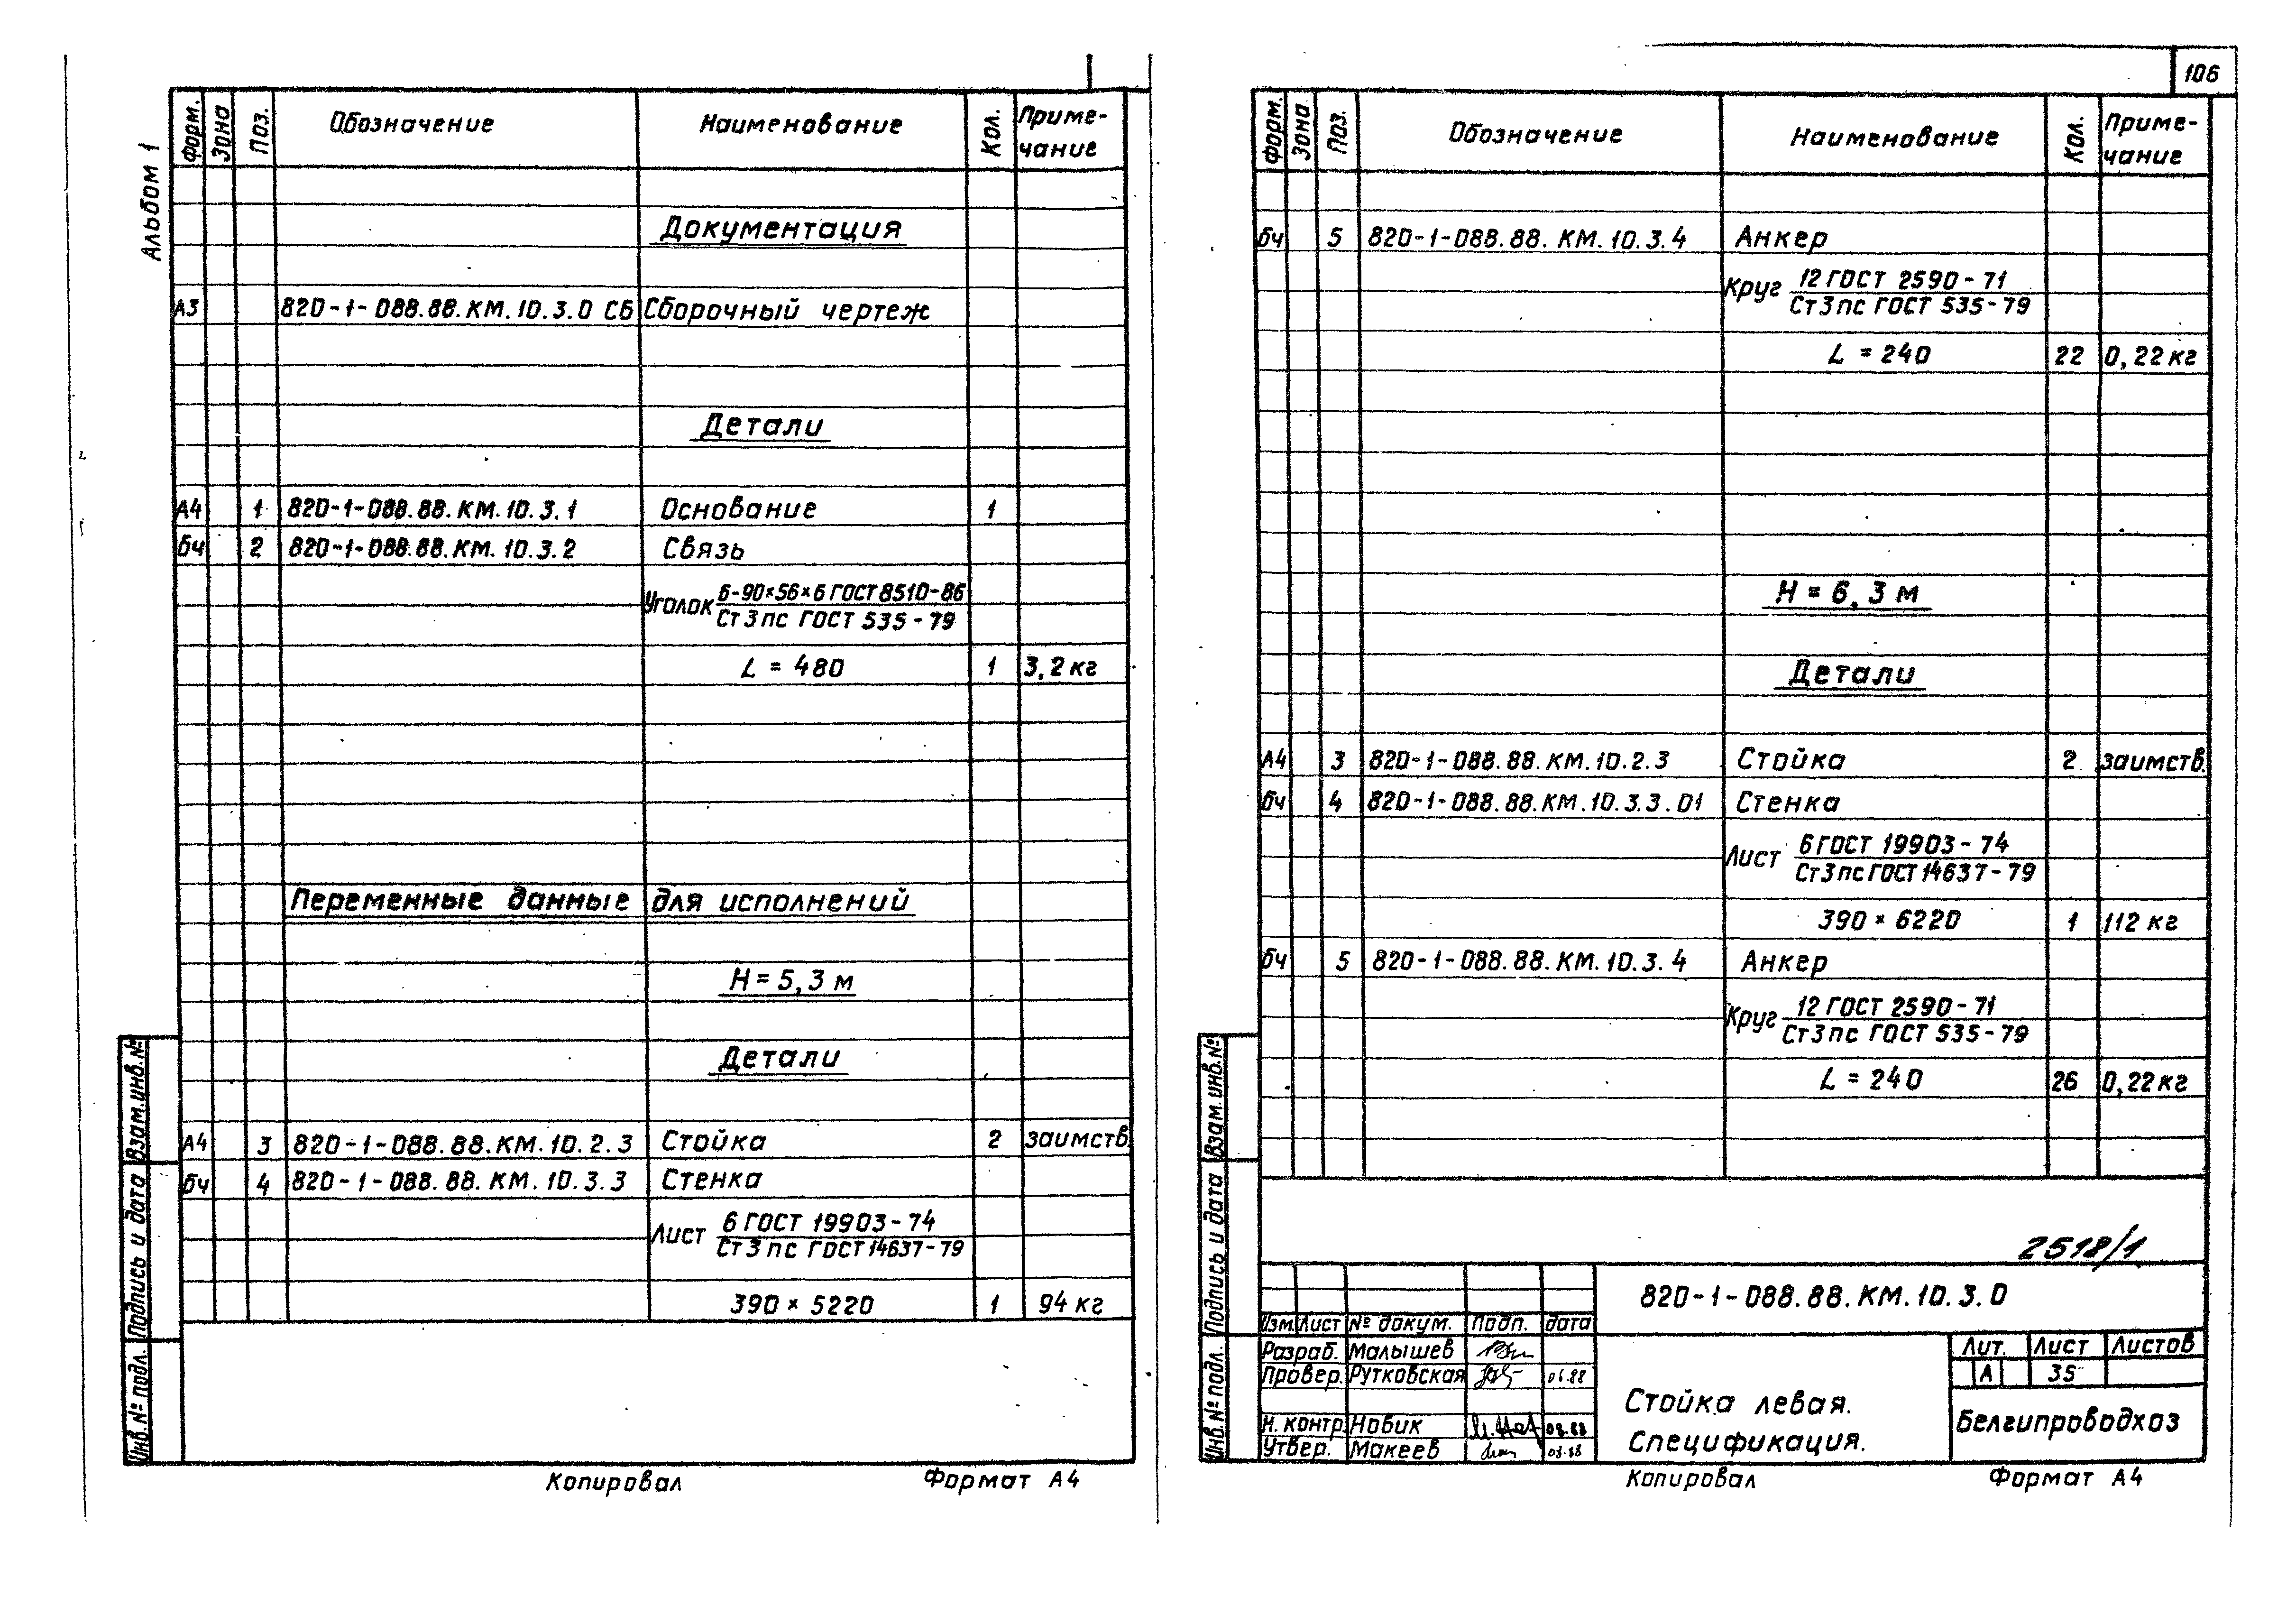 Альбом 1
Форм. Зона Поз. Обозначение Наименование Кол. Приме-
чание
Документация
А3 820-1-088.88.КМ.10.3.0 СБ Сборочный чертеж
Детали
А4 1 820-1-088.88.КМ.10.3.1 Основание 1
бч 2 820-1-088.88.КМ.10.3.2 Связь
Уголок Б-90×56×6 ГОСТ 8510-86
Ст3пс ГОСТ 535-79
L = 480 1 3,2 кг
Переменные данные для исполнений
Н = 5,3 м
Детали
А4 3 820-1-088.88.КМ.10.2.3 Стойка 2 заимств.
бч 4 820-1-088.88.КМ.10.3.3 Стенка
Лист 6 ГОСТ 19903-74
Ст3пс ГОСТ 14637-79
390 × 5220 1 94 кг
Взам.инв.№
Подпись и дата
Инв.№ подл.
Копировал Формат А4
106
Форм. Зона Поз. Обозначение Наименование Кол. Приме-
чание
бч 5 820-1-088.88.КМ.10.3.4 Анкер
Круг 12 ГОСТ 2590-71
Ст3пс ГОСТ 535-79
L = 240 22 0,22 кг
Н = 6,3 м
Детали
А4 3 820-1-088.88.КМ.10.2.3 Стойка 2 заимств.
бч 4 820-1-088.88.КМ.10.3.3.01 Стенка
Лист 6 ГОСТ 19903-74
Ст3пс ГОСТ 14637-79
390 × 6220 1 112 кг
бч 5 820-1-088.88.КМ.10.3.4 Анкер
Круг 12 ГОСТ 2590-71
Ст3пс ГОСТ 535-79
L = 240 26 0,22 кг
Взам.инв.№
Подпись и дата
Инв.№ подл.
2518/1
820-1-088.88.КМ.10.3.0
Изм. Лист № докум. Подп. дата
Разраб. Малышев
Провер. Рутковская 06.88
Н. контр. Новик 03.88
Утвер. Макеев 03.88
Стойка левая.
Спецификация.
Лит. Лист Листов
А 35
Белгипроводхоз
Копировал Формат А4